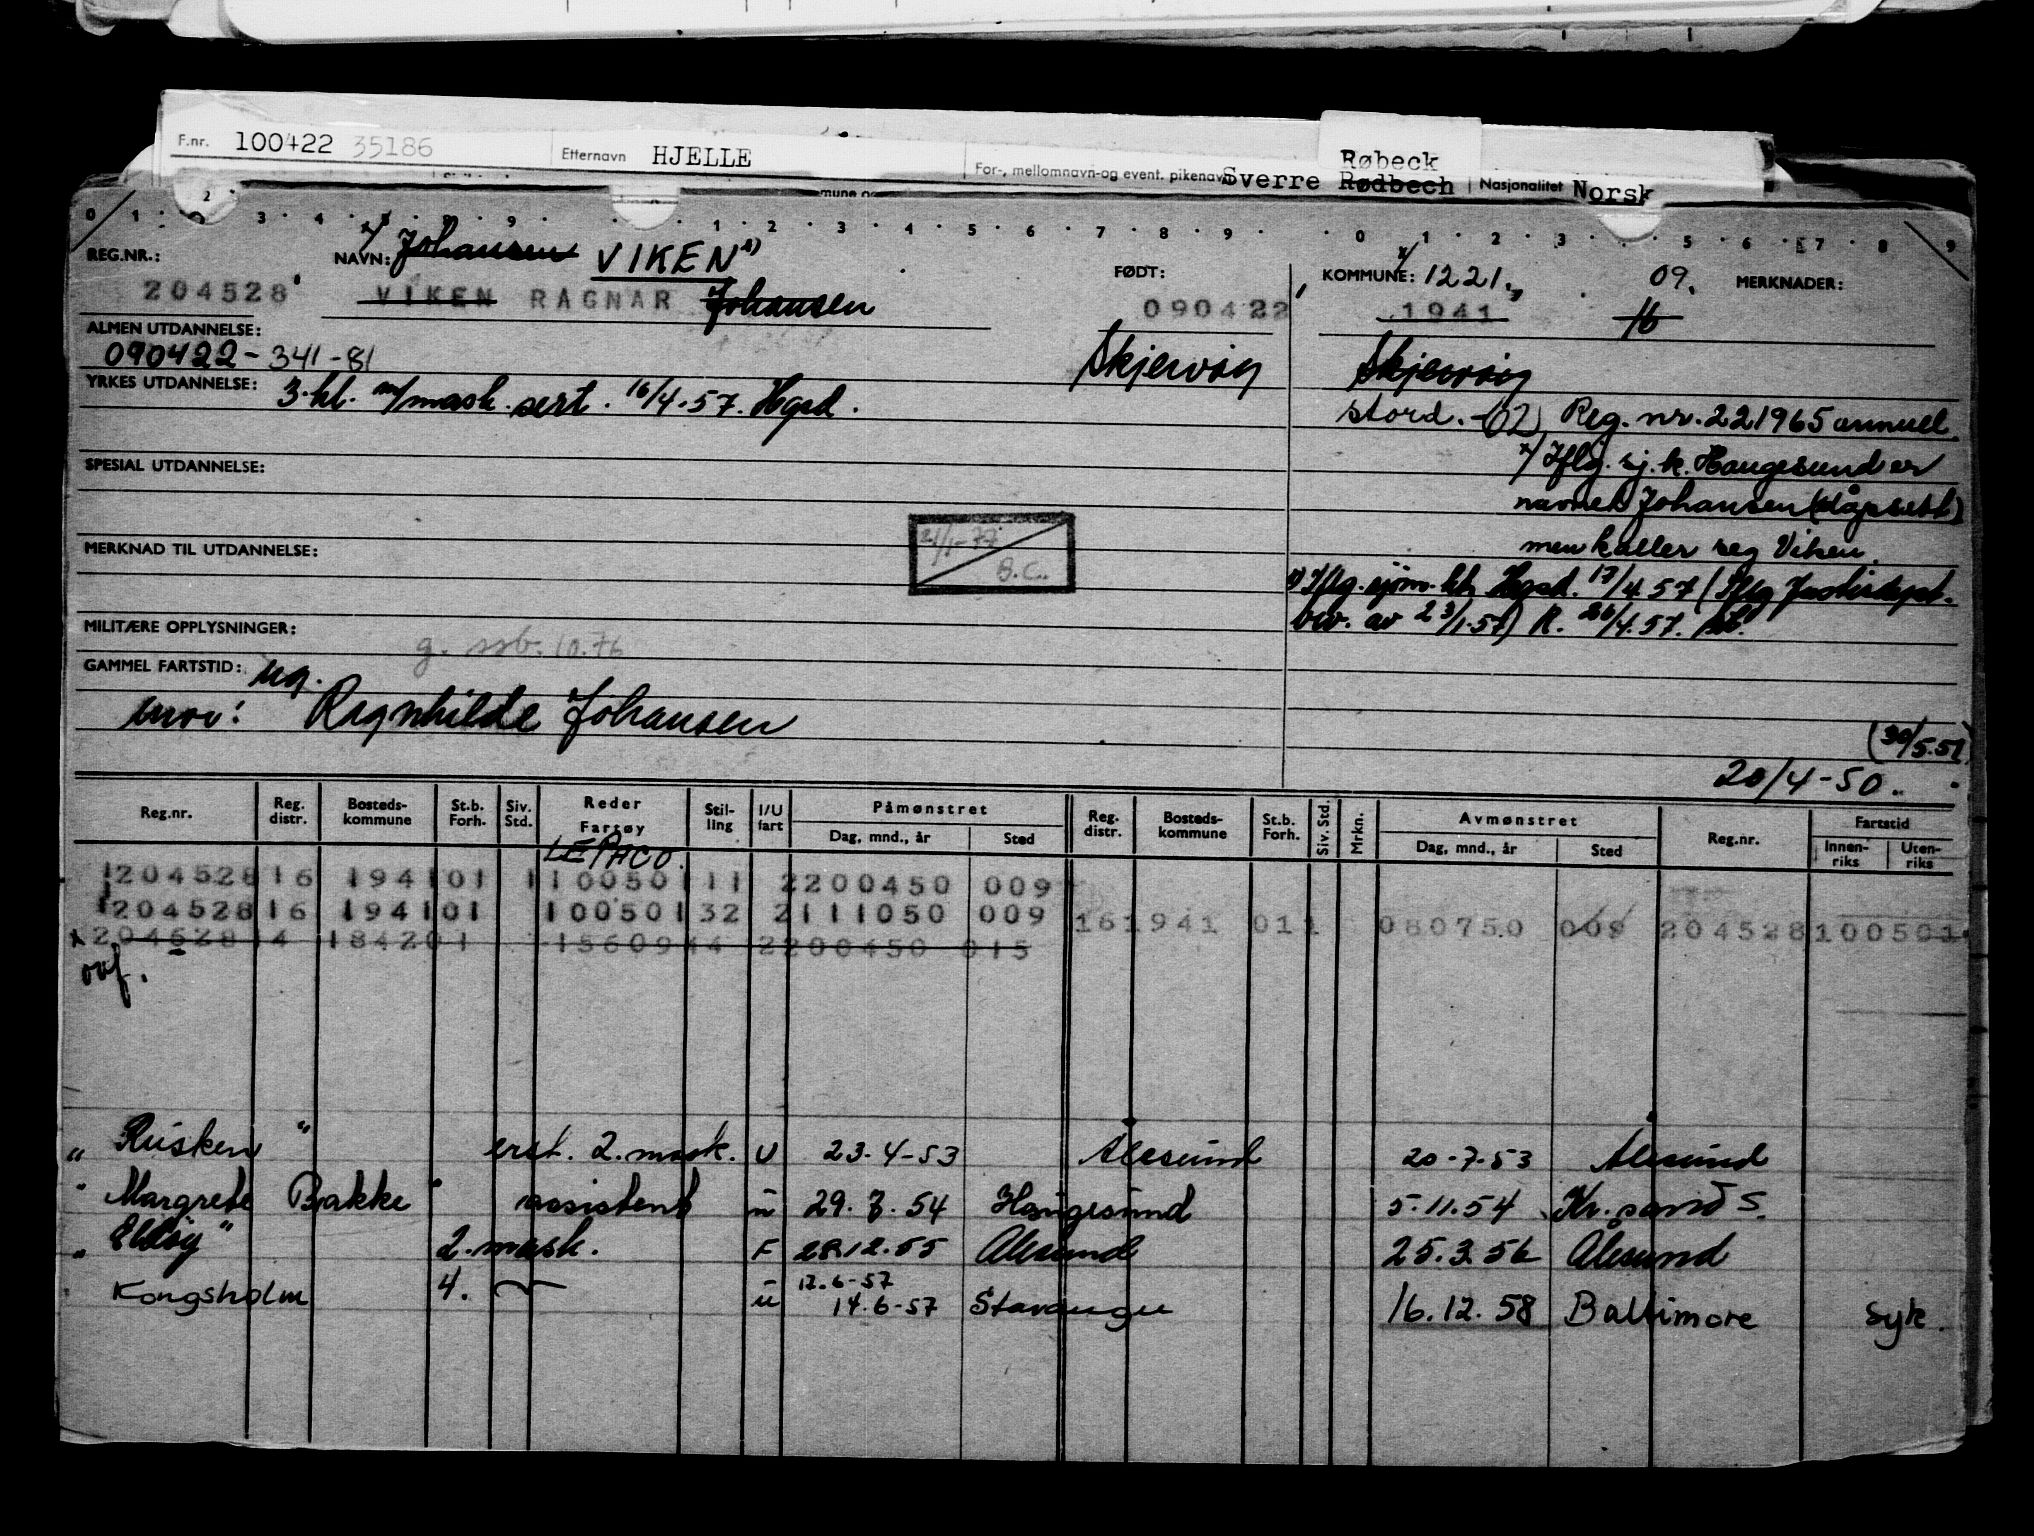 F.nr. 100422 35186 Etternavn HJELLE For-, mellomnavn-og event. pikenavn Sverre Rødbech Røbeck Nasjonalitet Norsk
REG.NR.: NAVN: x/ Johansen VIKEN FØDT: KOMMUNE: 1221 09. MERKNADER:
204528 VIKEN RAGNAR Johansen 090422 1941 16
ALMEN UTDANNELSE: Skjervøy Skjervøy
090422-341-81
YRKES UTDANNELSE: 3.kl. m/mask. sert. 16/4.57. Hgsd.
Stord. - (02) Reg. nr. 221965 annull.
x/ Iflg. sj.k. Haugesund er
SPESIAL UTDANNELSE: navnet Johansen (dåpsatt)
men kaller seg Viken.
MERKNAD TIL UTDANNELSE: 21/1-77 B.C.
Iflg. sjøm.kt. Hgsd. 17/4.57 (Iflg Justisdept.
bev. av 23/1.57) R. 26/4.57.
MILITÆRE OPPLYSNINGER: g. ssb. 10.76
GAMMEL FARTSTID: ug.
mor: Ragnhilde Johansen
(30/5.51)
20/4-50.
Reg.nr. Reg. distr. Bosteds-kommune St.b. Forh. Siv. Std. Reder Fartøy Stil-ling I/U fart Påmønstret Dag, mnd., år Sted Reg. distr. Bosteds-kommune St.b. Forh. Siv. Std. Mrkn. Avmønstret Dag, mnd., år Sted Reg.nr. Fartstid Innen-riks Uten-riks
LEPACO.
1204528 16 1941 01 1 10050 1 11 2200450 009
1204528 16 1941 01 10050 1 32 2111050 009 16 1941 01 1 080750 009 204528 100501
204528 14 1842 01 15609 44 2200450 015
ovf.
" Risken " erst. 2. mask. U 23.4-53 Ålesund 20-7-53 Ålesund
" Margrete Bakke " assistent u 29.7.54 Haugesund 5.11.54 Kr.sand S.
" Eldøy " 2. mask. F 28.12.55 Ålesund 25.3.56 Ålesund
Kongsholm 4. u 12.6-57
14.6-57 Stavanger 16.12.58 Baltimore syk.